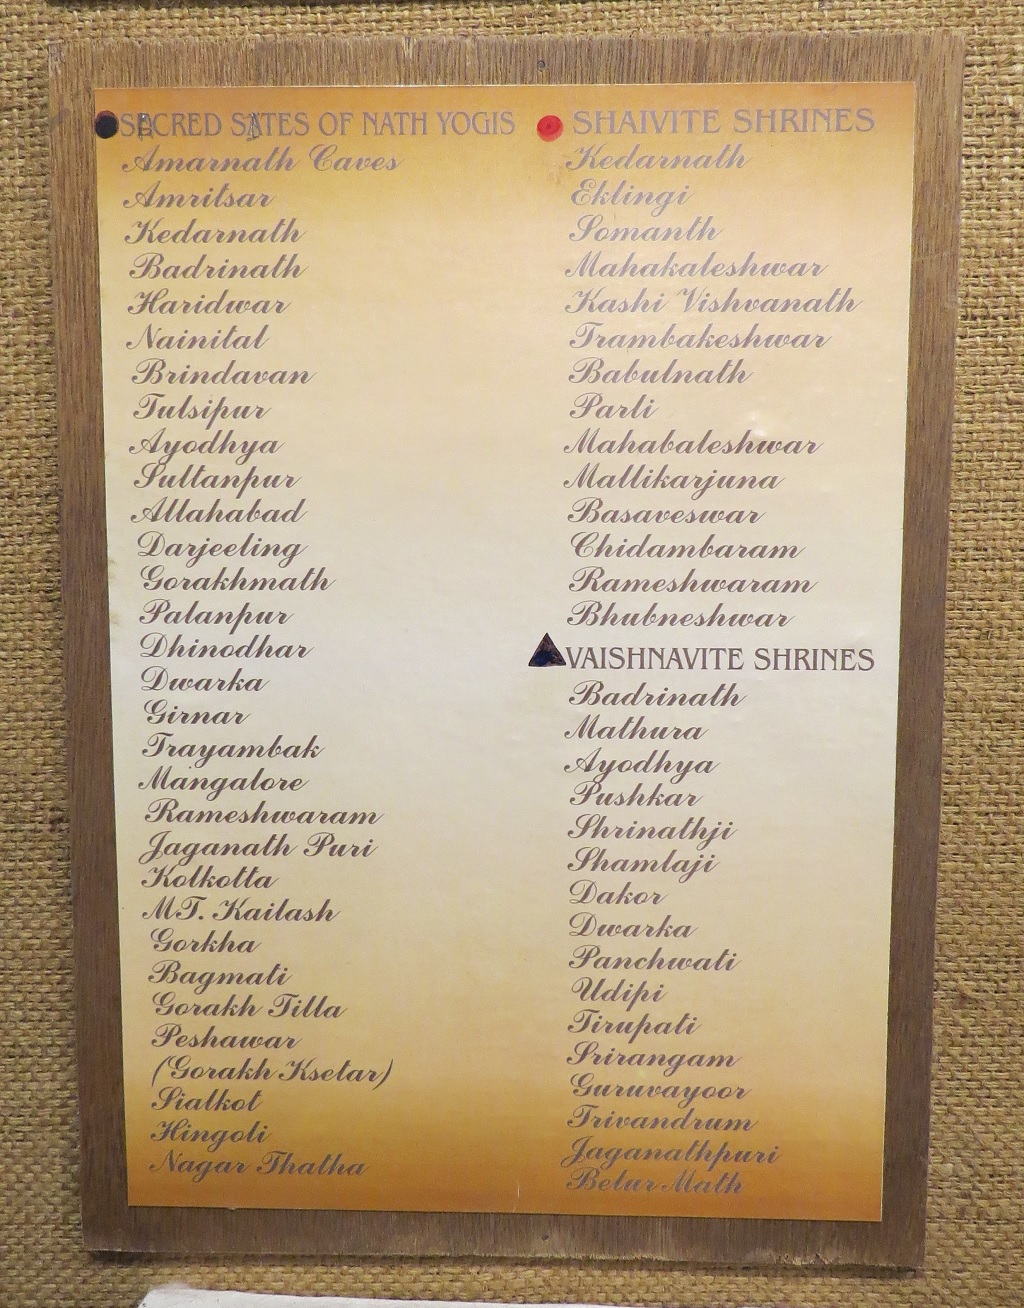 SACRED SATES OF NATH YOGIS
Amarnath Caves
Amritsar
Kedarnath
Badrinath
Haridwar
Nainital
Brindavan
Tulsipur
Ayodhya
Sultanpur
Allahabad
Darjeeling
Gorakhmath
Palanpur
Dhinodhar
Dwarka
Girnar
Trayambak
Mangalore
Rameshwaram
Jaganath Puri
Kolkotta
MT. Kailash
Gorkha
Bagmati
Gorakh Tilla
Peshawar
(Gorakh Ksetar)
Sialkot
Hingoli
Nagar Thatha
SHAIVITE SHRINES
Kedarnath
Eklingi
Somanth
Mahakaleshwar
Kashi Vishvanath
Trambakeshwar
Babulnath
Parli
Mahabaleshwar
Mallikarjuna
Basaveswar
Chidambaram
Rameshwaram
Bhubneshwar
VAISHNAVITE SHRINES
Badrinath
Mathura
Ayodhya
Pushkar
Shrinathji
Shamlaji
Dakor
Dwarka
Panchwati
Udipi
Tirupati
Srirangam
Guruvayoor
Trivandrum
Jaganathpuri
Belur Math